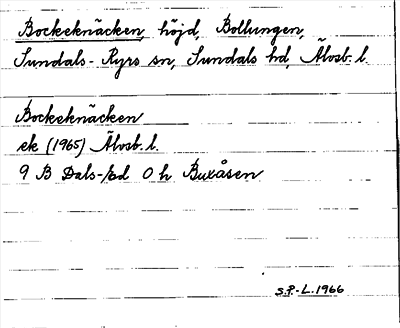 Bockeknäcken, höjd, Bollungen,
Sundals-Ryrs sn, Sundals hd, Älvsb. l.
Bockeknäcken
ek (1965) Älvsb. l.
9 B Dals-Ed 0 h Buxåsen
S.P.-L. 1966